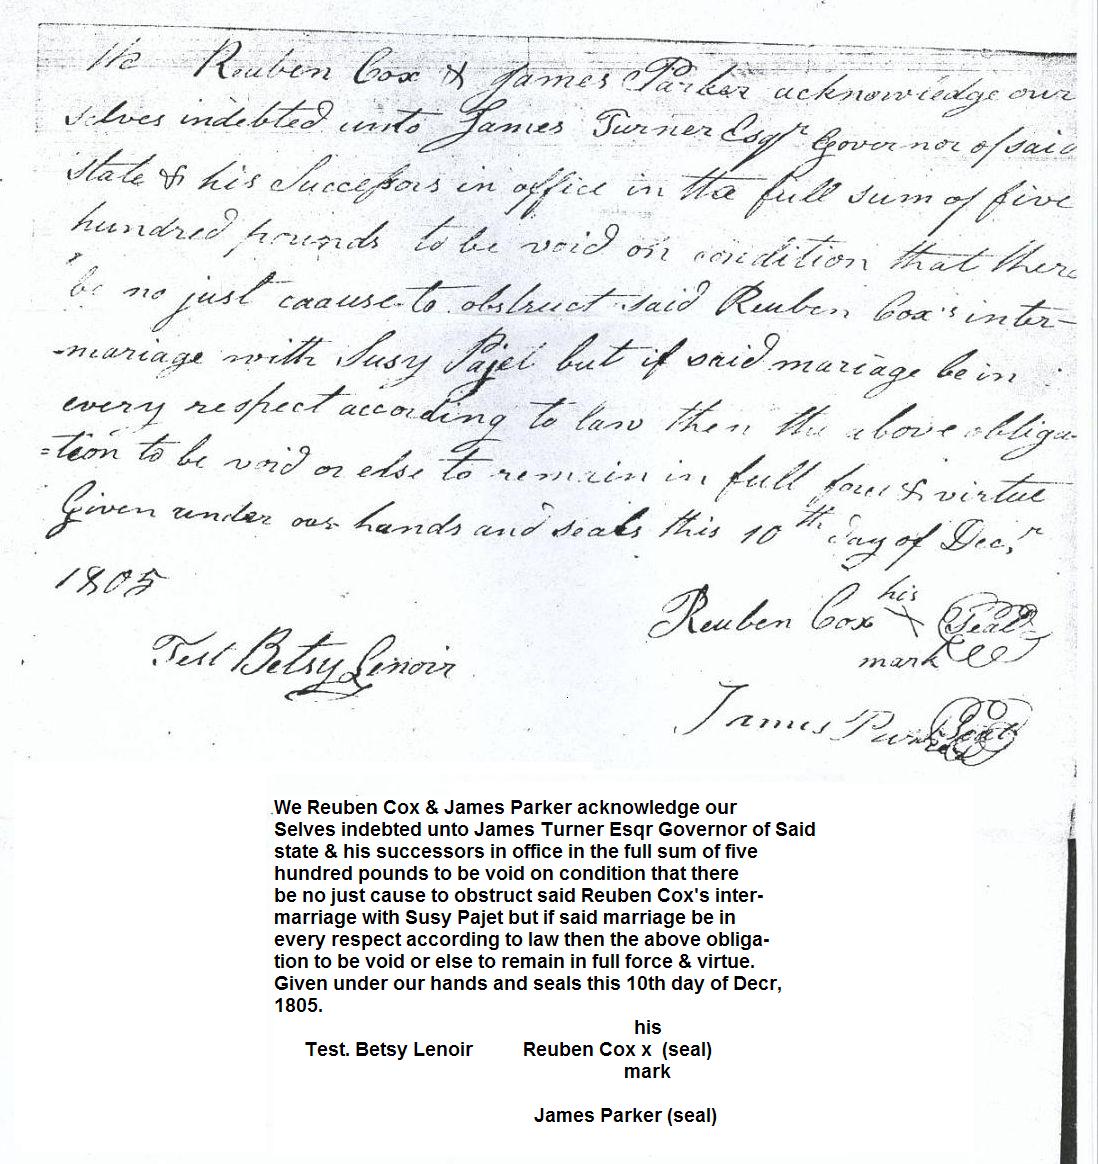 We Reuben Cox & James Parker acknowledge our
selves indebted unto James Turner Esqr Governor of said
State & his Successors in office in the full sum of five
hundred pounds to be void on condition that there
be no just caause to obstruct said Reuben Cox's inter-
-mariage with Susy Pajet but if said mariage be in
every respect according to law then the above obliga-
=tion to be void or else to remain in full force & virtue
Given under our hands and seals this 10th day of Decr
1805
his
Reuben Cox X Seal
mark
Test Betsy Lenoir
James Parker Seal
We Reuben Cox & James Parker acknowledge our
Selves indebted unto James Turner Esqr Governor of Said
state & his successors in office in the full sum of five
hundred pounds to be void on condition that there
be no just cause to obstruct said Reuben Cox's inter-
marriage with Susy Pajet but if said marriage be in
every respect according to law then the above obliga-
tion to be void or else to remain in full force & virtue.
Given under our hands and seals this 10th day of Decr,
1805.
his
Test. Betsy Lenoir Reuben Cox x (seal)
mark
James Parker (seal)